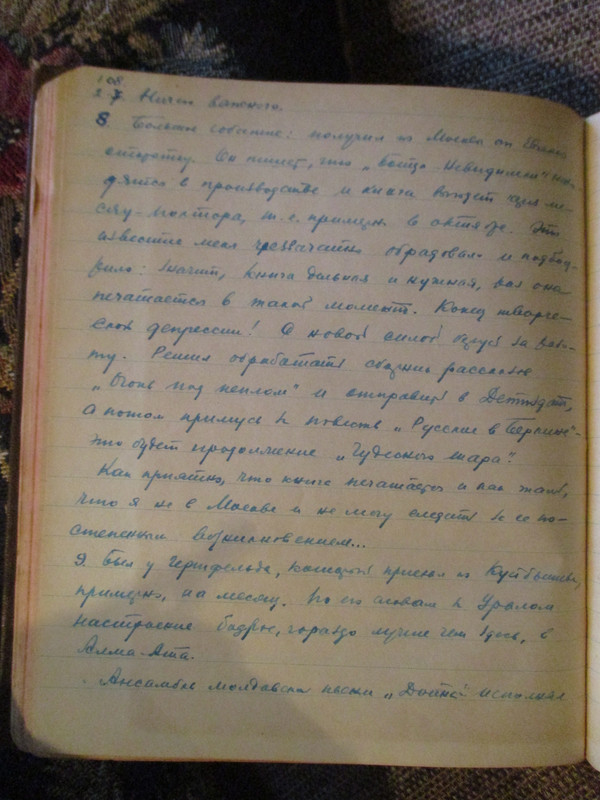 108
2-7. Ничего важного.
8. Большое событие: получил из Москвы от
открытку. Он пишет, что „Бойцы Невидимки" нахо-
дятся в производстве и книга выйдет через ме-
сяц-полтора, т.е. примерно в октябре. Это
известие меня чрезвычайно обрадовало и подбод-
рило: значит, книга дельная и нужная, раз она
печатается в такой момент. Конец творче-
ской депрессии! С новой силой берусь за рабо-
ту. Решил обработать сборник рассказов
„Огонь под пеплом" и отправить в Детиздат,
а потом примусь за повесть „Русские в Берлине" -
это будет продолжение „Чудесного шара".
Как приятно, что книга печатается и как жаль,
что я не в Москве и не могу следить за ее по-
степенным возникновением...
9. Был у Герцфельда, который приехал из Куйбышева,
примерно, на месяц. По его словам за Уралом
настроение бодрое, гораздо лучше чем здесь, в
Алма-Ата.
Ансамбль молдавской песни „Дойна" исполнял